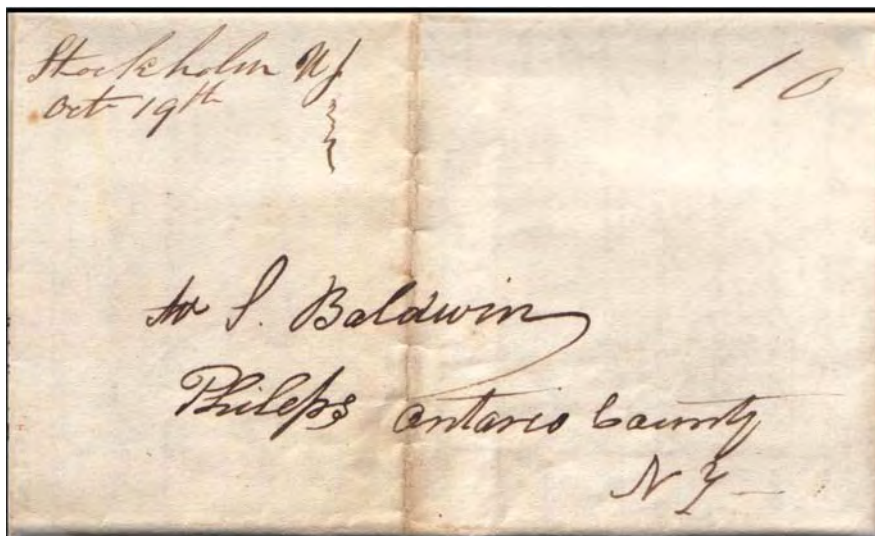 Stockholm NJ
Oct 19th
10
to S. Baldwin
Phileps Ontario County
N Y